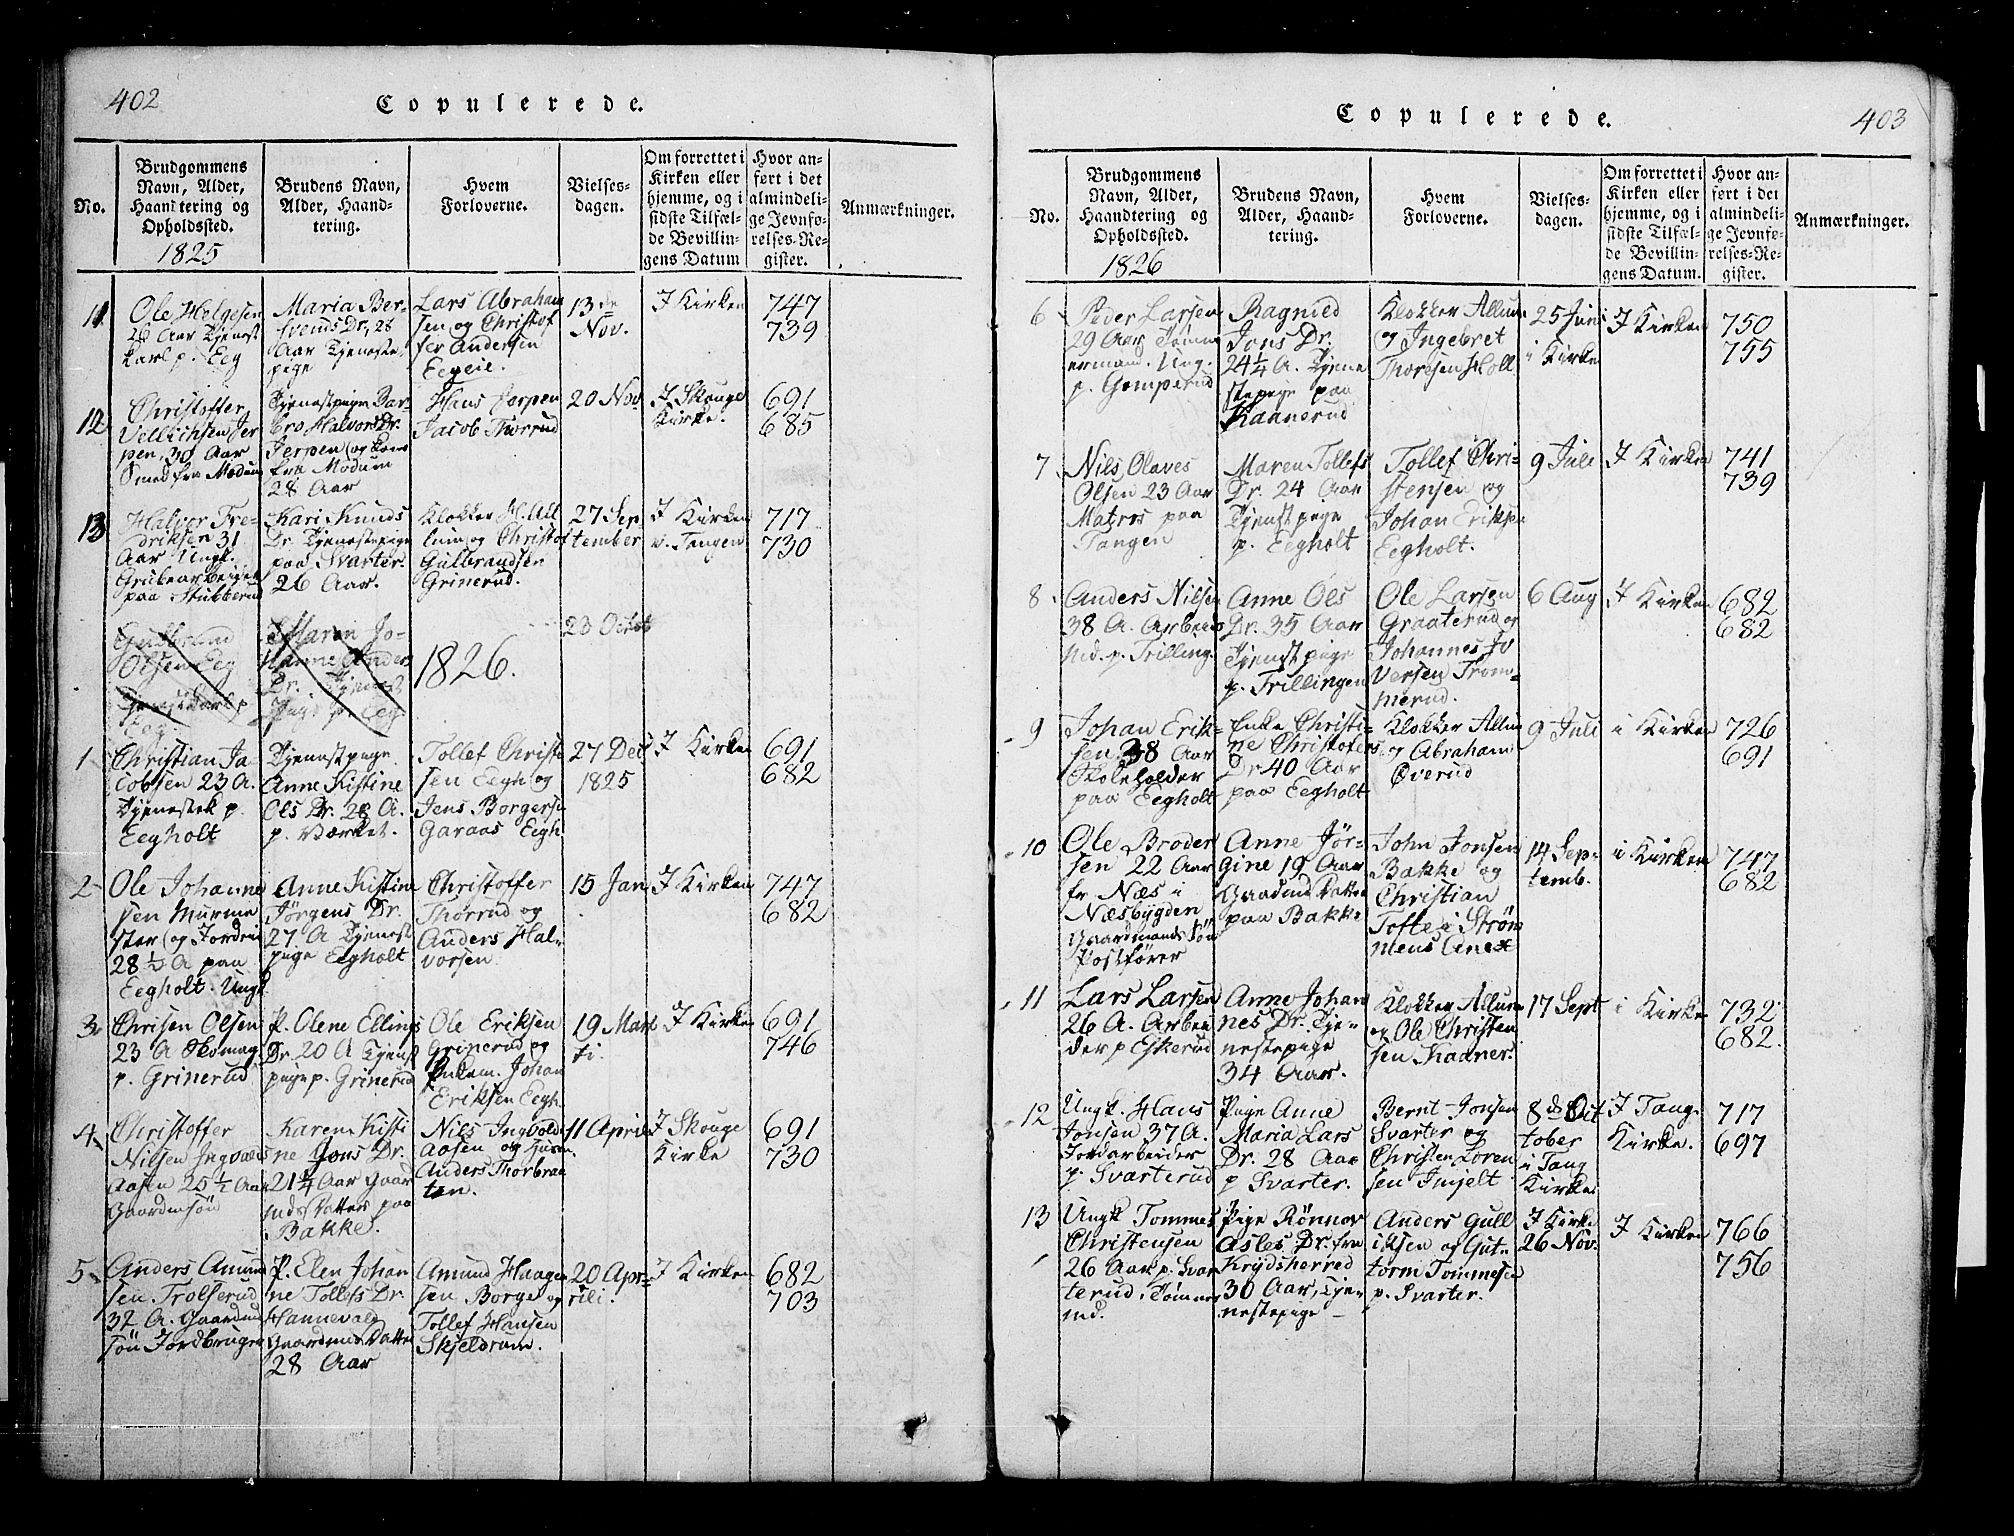 402
Copulerede.
No.
Brudgommens
Navn, Alder,
Haandtering og
Opholdssted.
1825
Brudens Navn,
Alder, Haand-
tering.
Hvem
Forloverne.
Vielses-
dagen.
Om forrettet i
Kirken eller
hjemme, og i
sidste Tilfæl-
de Bevillin-
gens Datum
Hvor an-
ført i det
almindeli-
ge Jevnfø-
relses-Re-
gister.
Anmærkninger.
11
Ole Helgesen
26 Aar Tjenest
karl p. Eeg
Maria Ber-
Dr. 26
Aar Tjeneste
pige
Lars Abraham
sen og Christof
fer Andersen
Eegeie.
13de
Nov.
I Kirken
747
739
12
Christoffer
Jer
pen, 30 Aar
Smed fra Modum
Tjenestpige Bar-
bro Halvors Dr.
Jerpen (og kom
fra Modum
28 Aar
Hans Jerpen
Jacob Thorrud
20 Nov
I Skouge
Kirke.
691
685
13
Halvor Fre-
driksen 31
Aar Ungk.
Grubearbeider
paa Stubberud
Kari Knuds
Dr. Tjenestepige
paa Svarter.
26 Aar.
Klokker H. All
um og Christof
Gulbrandsen
Grinerud.
27 Sep
tember
I Kirken
v. Tangen
717
730
Gulbrand
Olsen Eeg
Tjenestkarl p
Eeg
Maren Jo-
hanne Anders
Dr. Tjenest
Pige p. Eeg
1826.
23 Octob
1
Christian Ja
cobsen 23 A.
Tjenestek p.
Eegholt
Tjenestpige
Anne Kistine
Ols Dr. 28 A.
p. Værket.
Tollef Christ
sen Eegh og
Jens Borgerse
Garaas Eegh
27 Dec
1825
I Kirken
691
682
2
Ole Johanne
sen Murme
ster (og Jordei
28 ½ A paa
Eegholt. Ungk.
Anne Kistine
Jørgens Dr.
27 A Tjenest
pige Eegholt
Christoffer
Thorrud og
Anders Hal-
vorsen
15 Jan
I Kirken
747
682
3
Chrisen Olsen
23 A Skomag.
p. Grinerud
P. Olene Ellings
Dr. 20 A Tjenst
pige p. Grinerud
Ole Eriksen
Grinerud og
Enkem. Johan
Eriksen Eegh
19 Mart
ti.
I Kirken
691
746
4
Christoffer
Nilsen Ingvols
Aasen 25 ½ Aar
Gaardmsøn
Karen Kisti
ne Jons Dr.
21¼ Aar Gaar
mds Datter paa
Bakke.
Nils Ingvolds
Aasen og
Anders Thorbraa
ten.
11 April
I Skouge
Kirke
691
730
5
Anders Amun
sen Trolserud
37 A. Gaardm
søn Jordbruger
P. Elen Johan
ne Tollefs Dr
Hannevold
Gaardms Datter
28 Aar
Amund Haagen
sen Borge og
Tollef Hansen
Skjeldrum.
20 Ap-
rili.
I Kirken
682
703
403
Copulerede.
No.
Brudgommens
Navn, Alder,
Haandtering og
Opholdssted.
1826
Brudens Navn,
Alder, Haand-
tering.
Hvem
Forloverne.
Vielses-
dagen.
Om forrettet i
Kirken eller
hjemme, og i
sidste Tilfæl-
de Bevillin-
gens Datum.
Hvor an-
ført i det
almindeli-
ge Jevnfø-
relses-Re-
gister.
Anmærkninger.
6
Peder Larsen
29 Aar Tøm
ermand. Ung.
p. Gomperud
Ragnild
Jons Dr.
24¼ A. Tjene
stepige paa
Kaanerud
Klokker Allum
og Ingebret
Thoresen Holl
25 Juni
i Kirke
I Kirken
750
755
7
Nils Olaves
Olsen 23 Aar
Matros paa
Tangen
Maren Tollefs
Dr. 24 Aar
Tjenstpige
p. Eegholt
Tollef Chri-
stensen og
Johan Erikse
Eegholt.
9 Juli
I Kirken
741
739
8
Anders Nilsen
38 A. Arbeids
md. p. Trilling.
Anne Ols
Dr. 35 Aar
Tjenstpige
p. Trillingen
Ole Larsen
Graaterud og
Johannes Iv
versen Trom-
merud.
6 Aug
I Kirken
682
682
9
Johan Erik-
sen 38 Aar
Skoleholder
paa Eegholt
Enke Christi-
ne Christofers
Dr 40 Aar
paa Eegholt
Klokker Allum
og Abraham
Øverud
9 Juli
i Kirken
726
691
10
Ole Broder
sen 22 Aar
fr Næs i
Næsbygden
Gaardmands Søn
Postfører
Anne Jør-
gine 19 Aar
Gaardmd Datter
paa Bakke
John Jonsen
Bakke og
Christian
Tofte i Strøm
mens Anex
14 Sep-
temb.
i Kirken
747
682
11
Lars Larsen
26 A. Arbei
der p Eskerud
Anne Johan
nes Dr. Tje-
nestepige
34 Aar.
Klokker Allum
og Ole Christen
sen Kaaner.
17 Sept
i Kirke
732
682.
12
Ungk. Hans
Jonsen 37 A.
Jordarbeider
p. Svarterud
Pige Anne
Maria Lars
Dr. 28 Aar
p Svarter.
Bernt Jonsen
Svarter og
Christen Loren
sen
8de Oct
tober
i Tang
Kirke
I Tang.
Kirke.
717
697
13
Ungk Tommes
Christensen
26 Aar p. Svar
terud, Tømmer
md.
Pige Rønnov
Asles Dr. fra
Krydsherred
30 Aar, Tje-
nestepige
Anders Gull
iksen og Gut-
torm Tommesen
p. Svarter.
I Kirke
26 Nov.
I Kirken
766
756